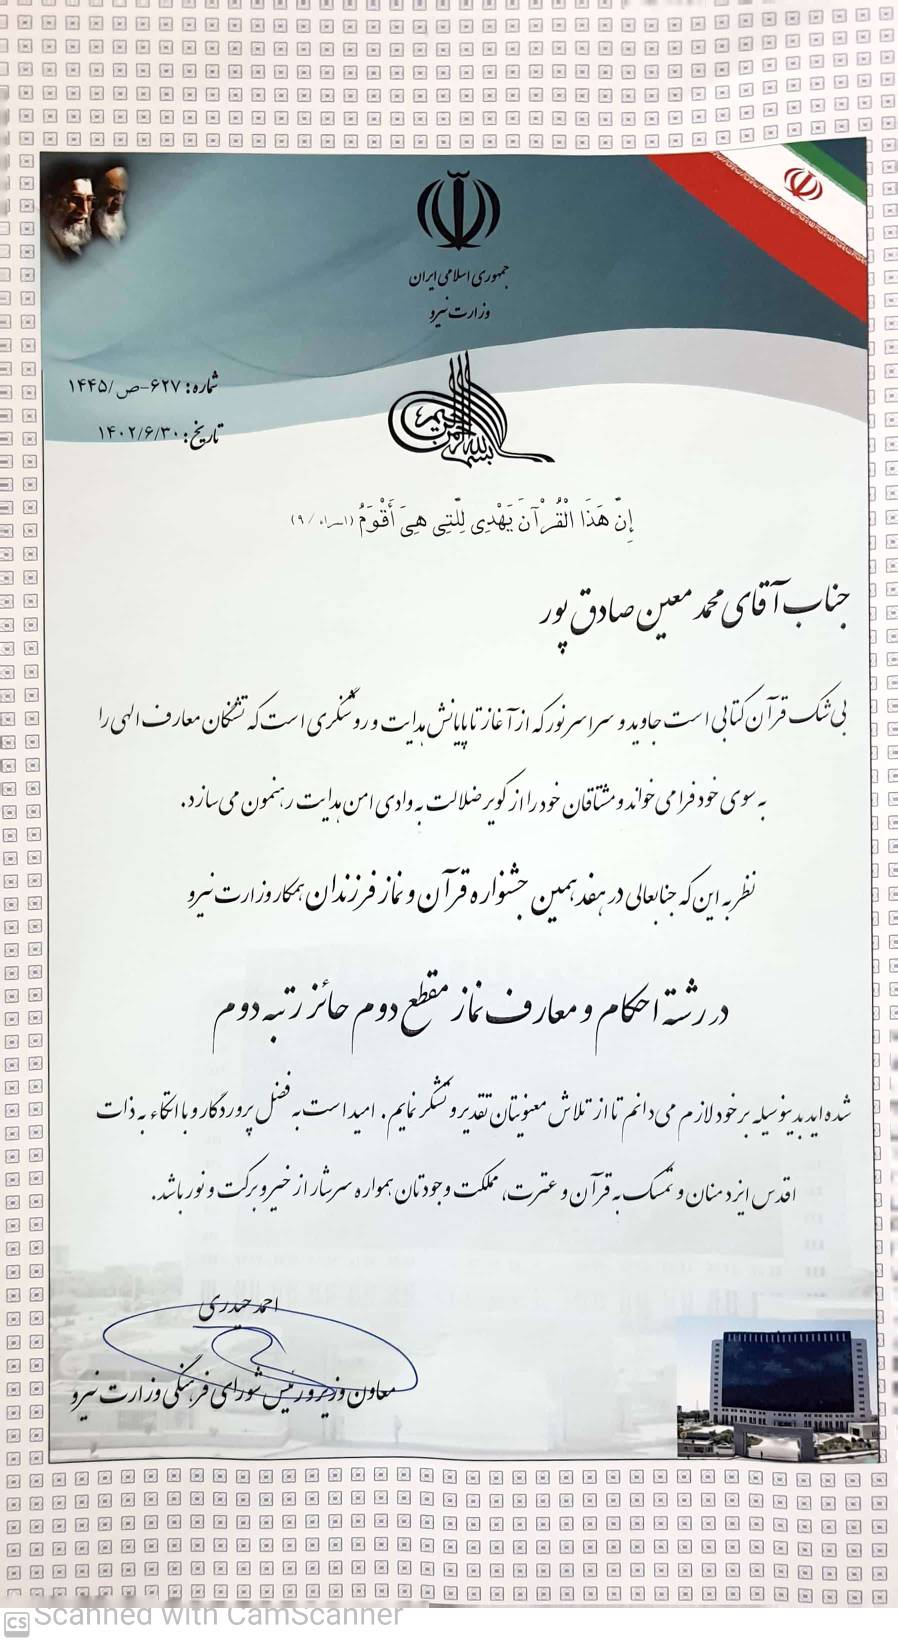 جمهوری اسلامی ایران
وزارت نیرو
شماره: ۶۲۷-ص/۱۴۴۵
تاریخ: ۱۴۰۲/۶/۳۰
بسم الله الرحمن الرحیم
إِنَّ هَذَا الْقُرْآنَ يَهْدِی لِلَّتِی هِیَ أَقْوَمُ (اسراء /۹)
جناب آقای محمد معین صادق پور
بی شک قرآن کتابی است جاوید و سراسر نور که از آغاز تا پایانش هدایت و روشنگری است که تشنگان معارف الهی را
به سوی خود فرا می خواند و مشتاقان خود را از کویر ضلالت به وادی امن هدایت رهنمون می سازد.
نظر به این که جنابعالی در هفدهمین جشنواره قرآن و نماز فرزندان همکار وزارت نیرو
در رشته احکام و معارف نماز مقطع دوم حائز رتبه دوم
شده اید بدینوسیله بر خود لازم می دانم تا از تلاش معنویتان تقدیر و تشکر نمایم. امید است به فضل پروردگار و با اتکاء به ذات
اقدس ایزد منان و تمسک به قرآن و عترت، مملکت وجودتان همواره سرشار از خیر و برکت و نور باشد.
احمد حیدری
معاون وزیر و رئیس شورای فرهنگی وزارت نیرو
CS Scanned with CamScanner